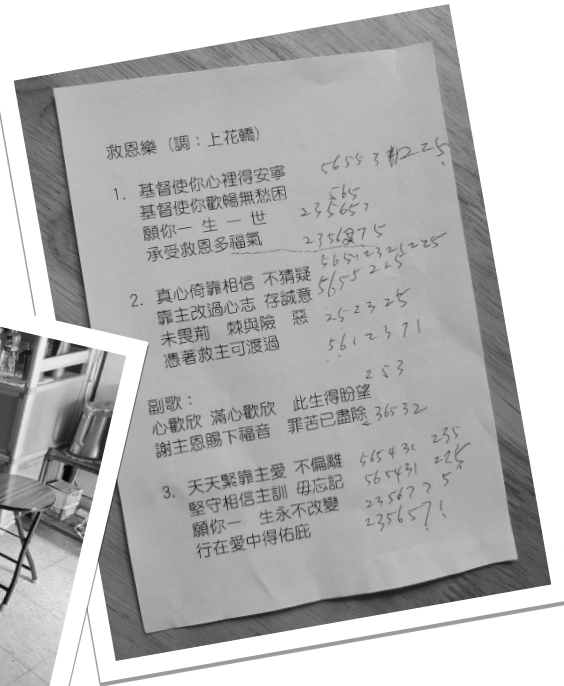 救恩樂（調：上花轎）
1. 基督使你心裡得安寧 56543
基督使你歡暢無愁困 565
願你一 生 一 世 23565
承受救恩多福氣 2356 75
2. 真心倚靠相信 不猜疑
靠主改過心志 存誠意 5655225
未畏荊　棘與險　惡 252325
憑著救主可渡過 5612371
253
副歌：
心歡欣 滿心歡欣　此生得盼望
謝主恩賜下福音　罪苦已盡除 236532
3. 天天緊靠主愛 不偏離 565431 235
堅守相信主訓 毋忘記 565431 225
願你一　生永不改變 23567
行在愛中得佑庇 235657